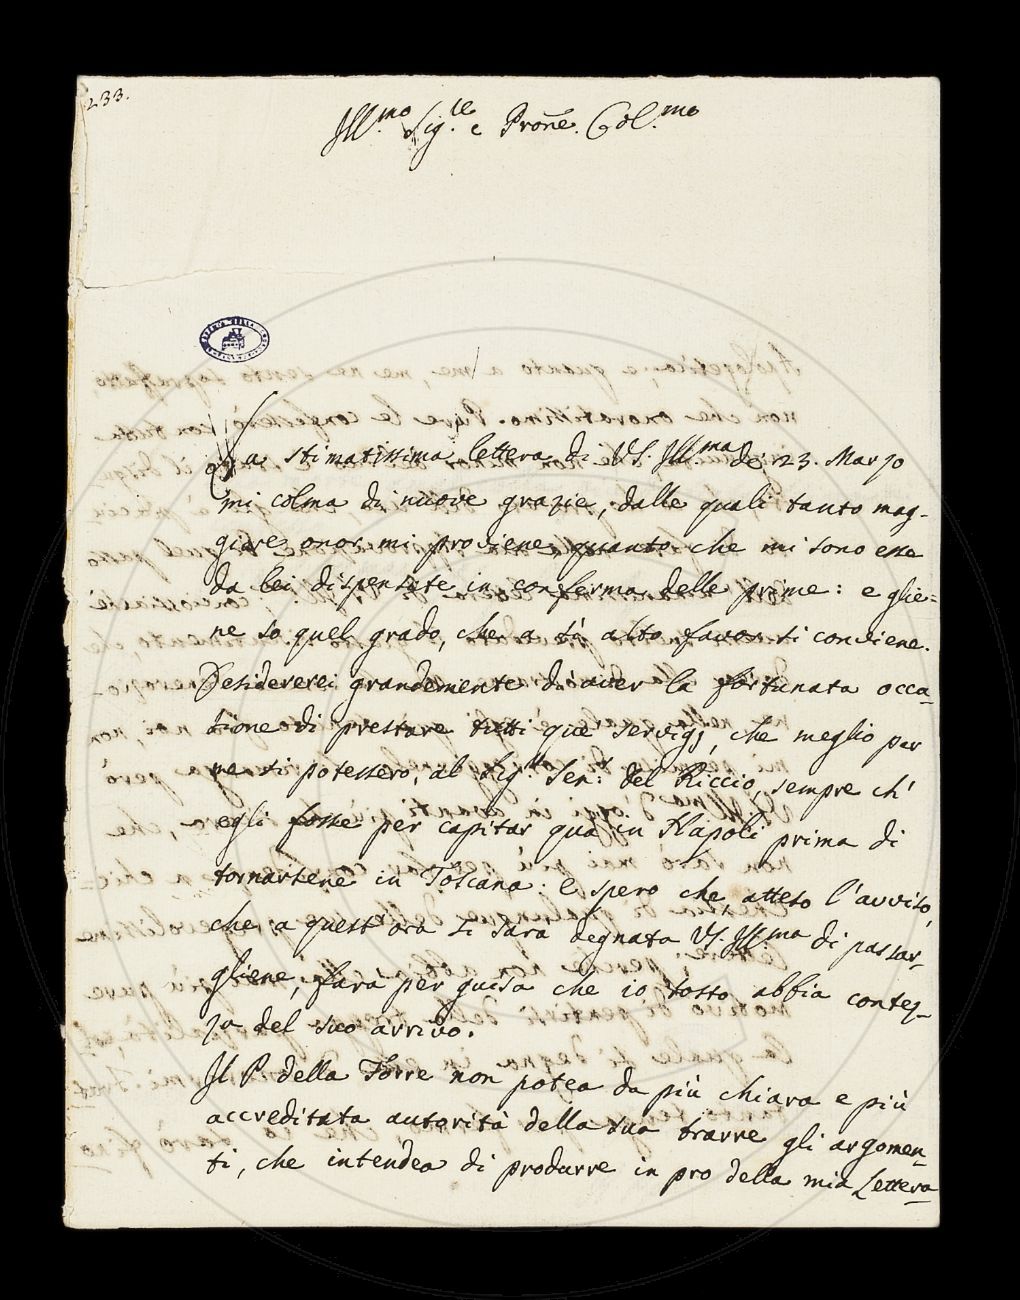 233.
Ill.mo Sig.re e Prone. Col.mo
La stimatissima lettera di VS. Ill.ma de' 23. Marzo
mi colma di nuove grazie, dalle quali tanto mag-
giore onor mi proviene, quanto che mi sono esse
da lei dispensate in conferma delle prime: e glie=
ne so quel grado, che a sì alto favor si conviene.
Desidererei grandemente di aver la fortunata occa-
sione di prestare tutti que' servigj, che meglio per
me si potessero, al Sig.r Sen.r del Riccio, sempre ch'
egli fosse per capitar quà in Napoli prima di
tornarsene in Toscana: e spero che, atteso l'avviso,
che a quest'ora si sarà degnata VS. Ill.ma di passar-
gliene, farà per guisa che io tosto abbia contez-
za del suo arrivo.
Il P. della Torre non potea da più chiara e più
accreditata autorità della sua trarre gli argomen-
ti, che intendea di produrre in pro della mia Lettera